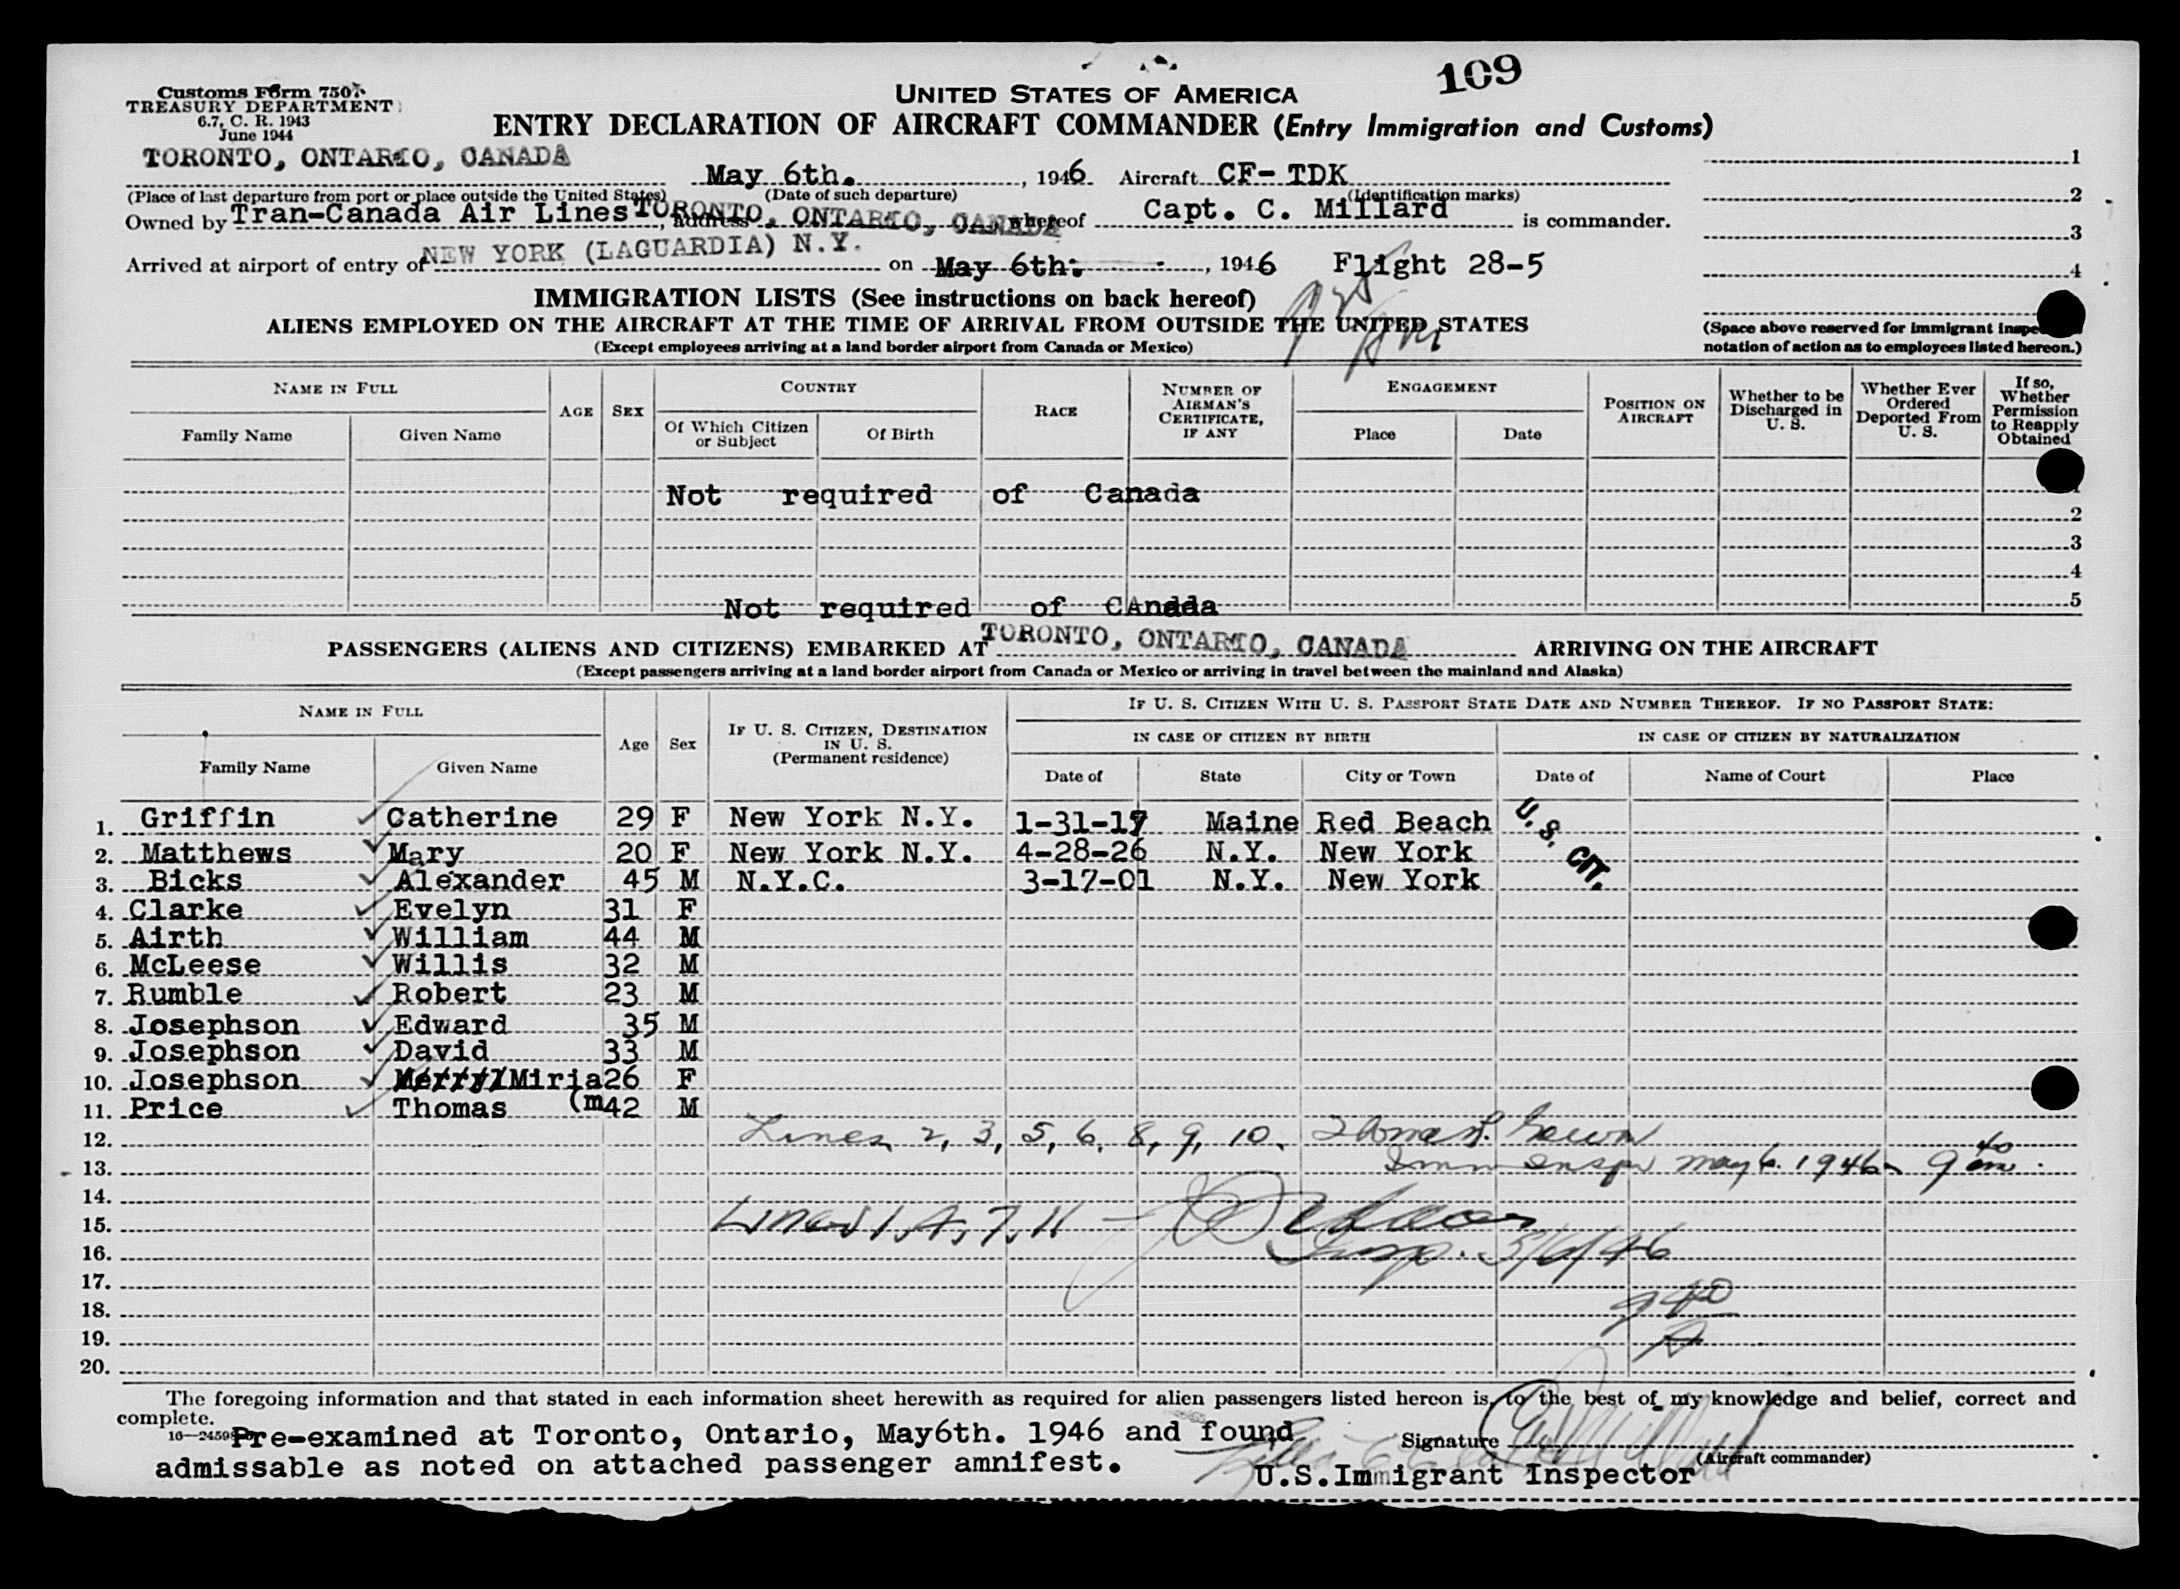 109
Customs Form 7507
TREASURY DEPARTMENT
6.7, C. R. 1943
June 1944
UNITED STATES OF AMERICA
ENTRY DECLARATION OF AIRCRAFT COMMANDER (Entry Immigration and Customs)
TORONTO, ONTARIO, CANADA May 6th. , 1946 Aircraft CF- TDK
(Place of last departure from port or place outside the United States) (Date of such departure) (Identification marks)
Owned by Tran-Canada Air Lines, address TORONTO, ONTARIO, CANADA whereof Capt. C. Millard is commander.
Arrived at airport of entry of NEW YORK (LAGUARDIA) N.Y. on May 6th. , 1946 Flight 28-5
1
2
3
4
IMMIGRATION LISTS (See instructions on back hereof)
ALIENS EMPLOYED ON THE AIRCRAFT AT THE TIME OF ARRIVAL FROM OUTSIDE THE UNITED STATES
(Except employees arriving at a land border airport from Canada or Mexico)
(Space above reserved for immigrant
notation of action as to employees listed hereon.)
NAME IN FULL AGE SEX COUNTRY RACE NUMBER OF AIRMAN'S CERTIFICATE, IF ANY ENGAGEMENT POSITION ON AIRCRAFT Whether to be Discharged in U. S. Whether Ever Ordered Deported From U. S. If so, Whether Permission to Reapply Obtained
Family Name Given Name Of Which Citizen or Subject Of Birth Place Date
Not required of Canada
2
3
4
Not required of CAnada 5
PASSENGERS (ALIENS AND CITIZENS) EMBARKED AT TORONTO, ONTARIO, CANADA ARRIVING ON THE AIRCRAFT
(Except passengers arriving at a land border airport from Canada or Mexico or arriving in travel between the mainland and Alaska)
NAME IN FULL Age Sex IF U. S. CITIZEN, DESTINATION IN U. S. (Permanent residence) IF U. S. CITIZEN WITH U. S. PASSPORT STATE DATE AND NUMBER THEREOF. IF NO PASSPORT STATE:
IN CASE OF CITIZEN BY BIRTH IN CASE OF CITIZEN BY NATURALIZATION
Family Name Given Name Date of State City or Town Date of Name of Court Place
1. Griffin Catherine 29 F New York N.Y. 1-31-17 Maine Red Beach U. S. CIT.
2. Matthews Mary 20 F New York N.Y. 4-28-26 N.Y. New York
3. Bicks Alexander 45 M N.Y.C. 3-17-01 N.Y. New York
4. Clarke Evelyn 31 F
5. Airth William 44 M
6. McLeese Willis 32 M
7. Rumble Robert 23 M
8. Josephson Edward 35 M
9. Josephson David 33 M
10. Josephson Merryl Miria 26 F
11. Price Thomas (m 42 M
12. Lines 2, 3, 5, 6, 8, 9, 10. Thomas
13. Imm Inspr May 6. 1946 9 40 am
14.
15. Lines 1, 4, 7, 11
16. Insp. 5/6/46
17.
18. 9 40
19. A
20.
The foregoing information and that stated in each information sheet herewith as required for alien passengers listed hereon is, to the best of my knowledge and belief, correct and
complete.
Pre-examined at Toronto, Ontario, May6th. 1946 and found Signature
admissable as noted on attached passenger amnifest. U.S.Immigrant Inspector (Aircraft commander)